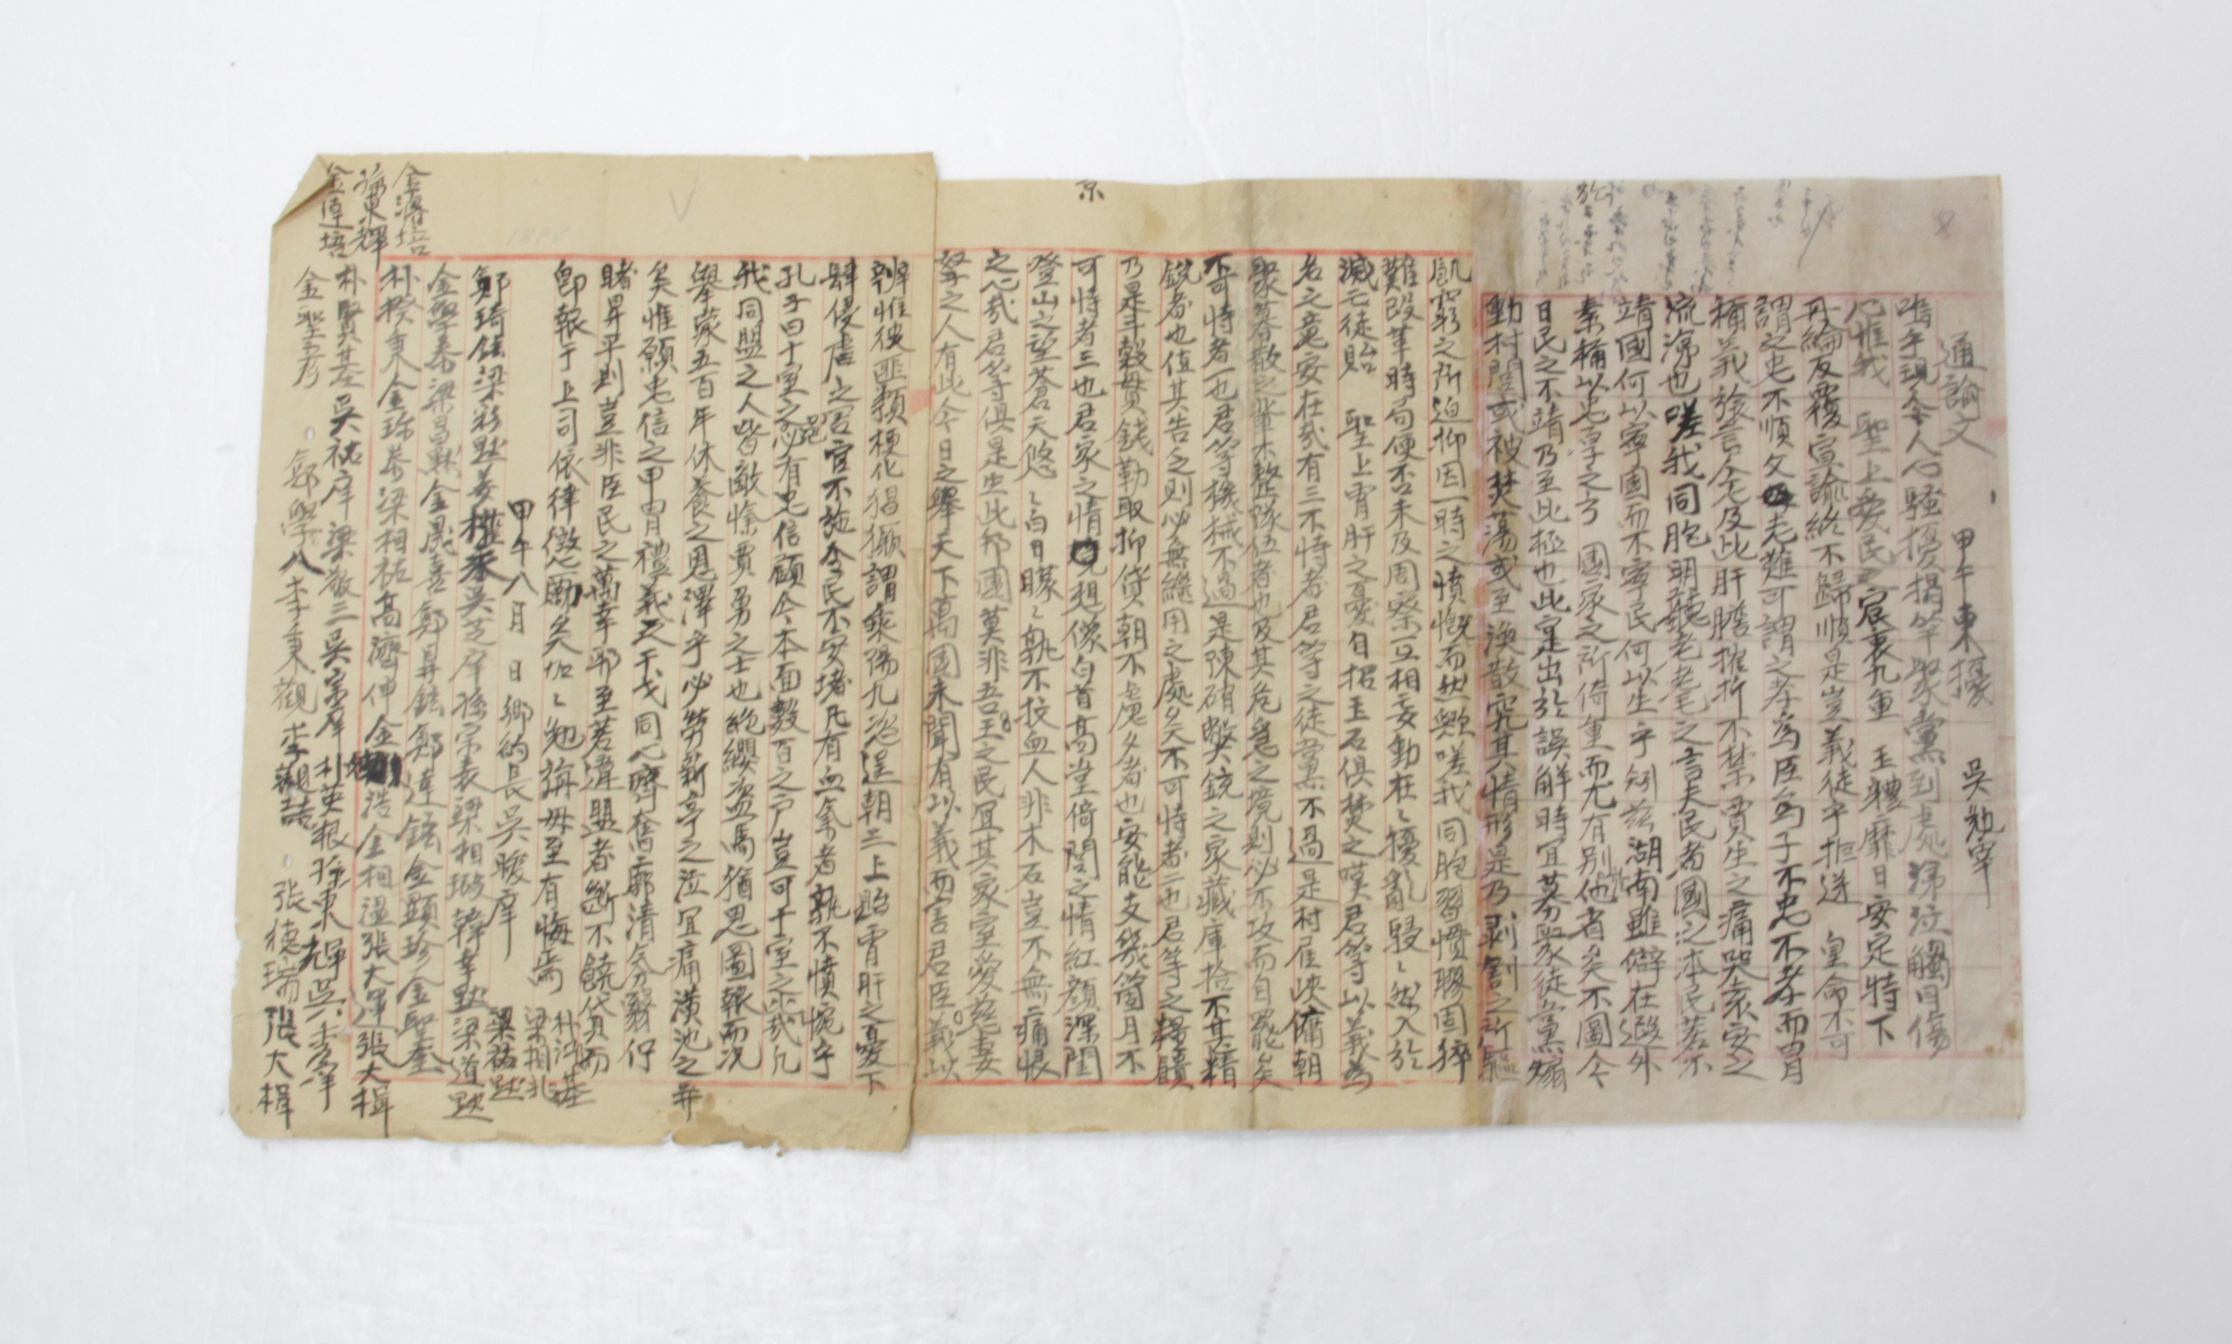 通諭文 甲午東擾 吳勉宰
嗚乎現今人心騷擾揭竿聚黨到處涕泣觸目傷
心惟我 聖上愛民之宸衷九重 玉體靡日安定特下
丹綸反覆宣諭終不歸順是豈義徒乎拒逆 皇命不可
謂之忠不順父老難可謂之孝爲臣爲子不忠不孝而冒
稱義號言念及此肝膽摧折不禁賈生之痛哭袁安之
流涕也嗟我同胞明聽老老耄之言夫民者國之本民若不
靖國何以寧國而不寧民何以生乎矧玆湖南雖僻在遐外
素稱以忠孝之方 國家之所倚重而尤有別他省矣不圖今
日民之不靖乃至此極也此寔出於誤解時宜募聚徒黨煽
動村閭或被焚蕩或至渙散究其情形是乃剥割之所驅
飢窮之所迫抑因一時之憤慨而然歟嗟我同胞習慣膠固猝
難改革時局便否未及周察互相妄動在在擾亂駸駸然入於
滅亡徒貽 聖上宵肝之憂自招玉石俱焚之嘆君等以義爲
名之意安在哉有三不恃者君等之徒黨不過是村雇峽傭朝
聚暮散之輩不整隊伍者也及其危急之境則必不攻而自罷矣
不可恃者一也君等機械不過是陳硝弊銃之家藏庫拾不其精
銳者也值其告乏則必無繼用之處矣不可恃者二也君等之糧饋
乃是斗穀貫錢勒取抑貸朝不慮夕者也安能支幾箇月不
可恃者三也君家之情況想像白首高堂倚閭之情紅顔深閨
登山之望蒼天悠悠白日曚曚孰不挍血人非木石豈不無痛恨
之心哉君等俱是生此邦國莫非吾王之民宜其家室愛玆妻
孥之人有此今日之擧天下萬國未聞有以義而言君臣義以
辨惟彼匪類梗化猖獗謂乘陽九恣逞朝三上貽宵肝之憂下
肆侵虐之官不施令民不安堵凡有血氣者孰不憤惋乎
孔子曰十室之邑必有忠信顧今本面數百之戶豈可十室之比哉凡
我同盟之人皆敵愾賈勇之士也絶纓盜馬猶思圖報而況
擧蒙五百年休養之恩澤乎必勞新亭之泣宜痛潢池之弄
矣惟願忠信之甲冑禮義之干戈同心齊奮廓清氛翳佇
睹昇平則豈非臣民之萬幸耶至若違盟者斷不饒貸而
卽報于上司依律徵勵矣伋伋勉旃毋至有悔焉
甲午八月 日鄕約長吳勉宰
朴沂基
梁相兆
梁祐默
鄭琦鉉 梁彩默 姜權參 吳芝宰 孫宗表 梁相璇 韓幸默 梁道默
金學泰 梁昌默 金鳳善 鄭昇鉉 鄭達鉉 金顯珍 金聖奎
朴揆東 金珎泰 梁相祐 高濟伸 金浩 金相溫 張大運 張大楫
朴賢基 吳祐宰 梁敬三 吳宗宰 朴英根 孫東輝 吳春宰
金聖彥 鄭學八 李東觀 李觀喆 張德瑞 張大楫
金濬培
孫東輝
金達培
京